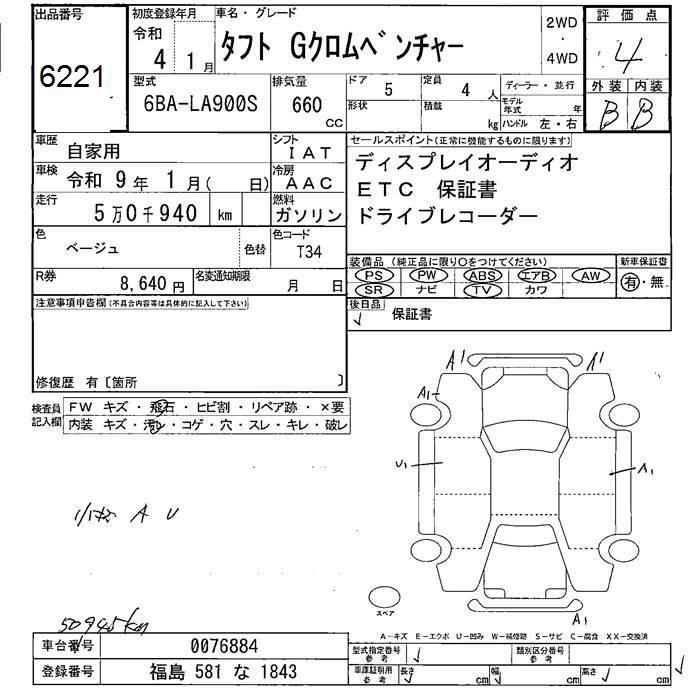 出品番号
6221
初度登録年月
令和
4 1月
車名・グレード
タフト Gクロムベンチャー
2WD
・
4WD
評価点
4
外装 内装
B B
型式
6BA-LA900S
排気量
660
CC
ドア
5
定員
4 人
形状
積載
kg
ディーラー・並行
モデル年式 年
ハンドル 左・右
車歴
自家用
シフト
IAT
車検
令和 9年 1月( 日)
冷房
AAC
走行
5万0千940 km
燃料
ガソリン
色
ベージュ
色替
色コード
T34
R券
8,640円
名変通知期限
月 日
セールスポイント(正常に機能するものに限ります)
ディスプレイオーディオ
ETC 保証書
ドライブレコーダー
装備品 (純正品に限り○をつけてください)
PS PW ABS エアB AW
SR ナビ TV カワ
新車保証書
有・無
後日品
保証書
注意事項申告欄(不具合内容等は具体的に記入して下さい)
修復歴 有〔箇所 〕
検査員記入欄
FW キズ・飛石・ヒビ割・リペア跡・×要
内装 キズ・汚レ・コゲ・穴・スレ・キレ・破レ
A1 A1
A1
U1 A1
A U
A1
スペア
A－キズ E－エクボ U－凹み W－補修跡 S－サビ C－腐食 XX－交換済
50945km
車台番号
0076884
登録番号
福島 581 な 1843
型式指定番号
参考
類別区分番号
車庫証明用
参考
長さ cm 幅 cm 高さ cm